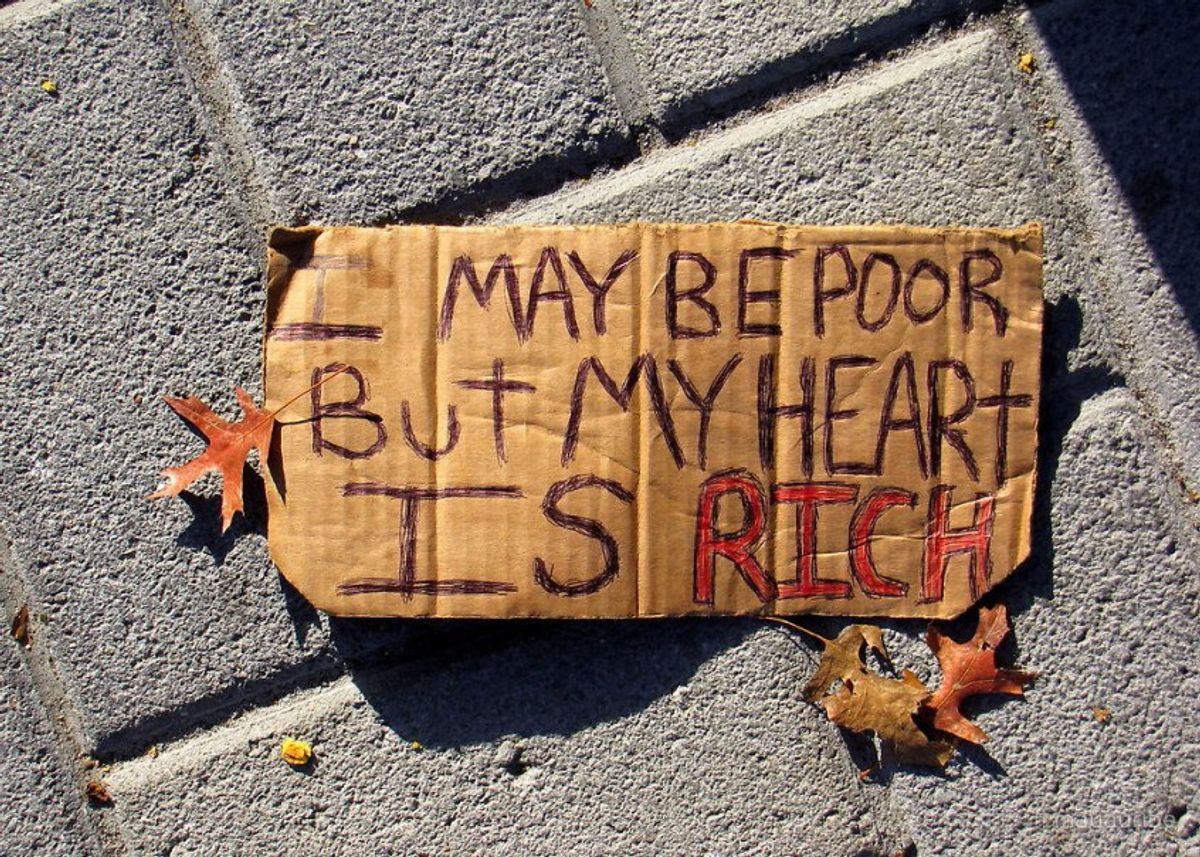 I MAY BE POOR
BUt MY HEARt
IS RICH